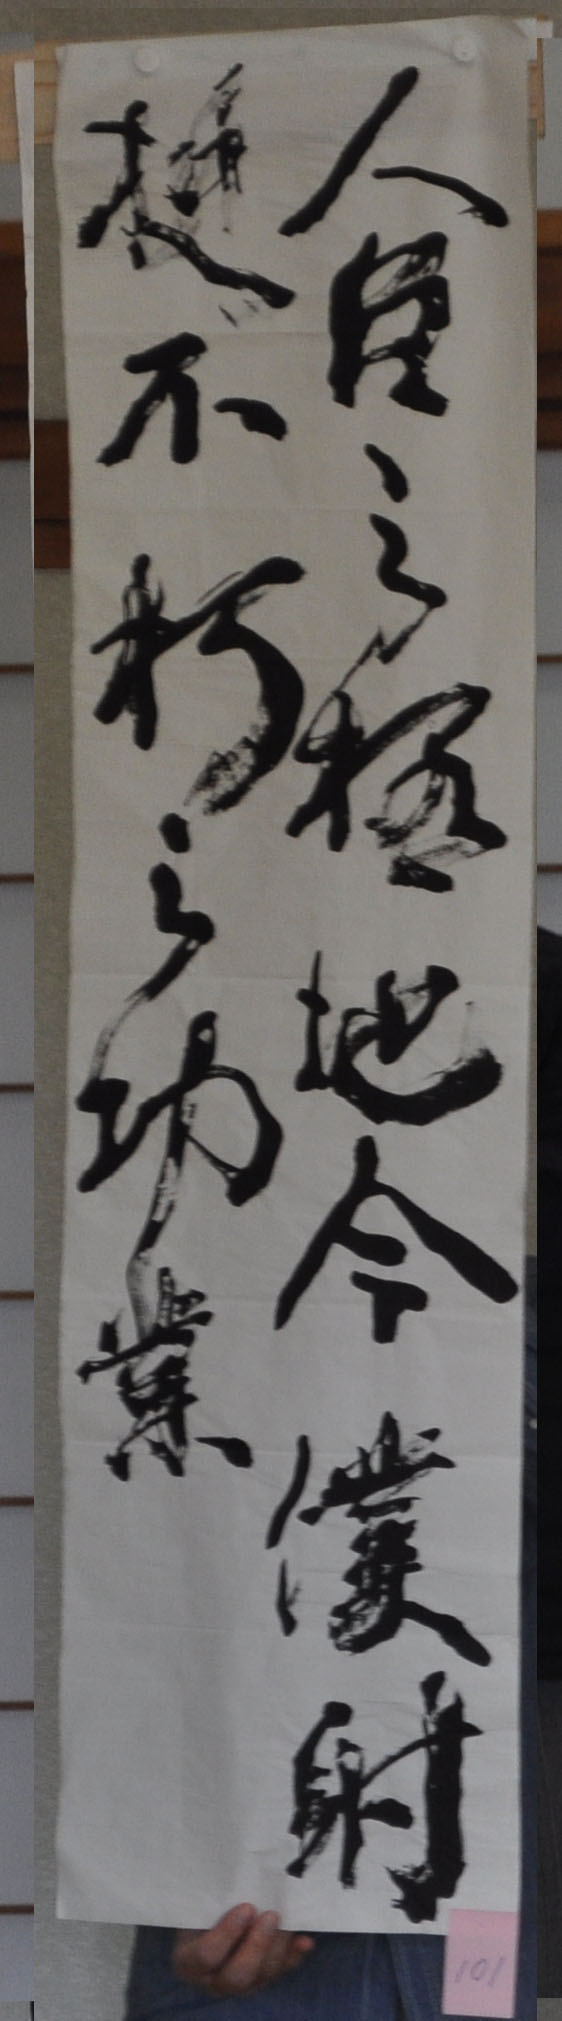 人臣之極地今僕射
挺不朽之功業
101